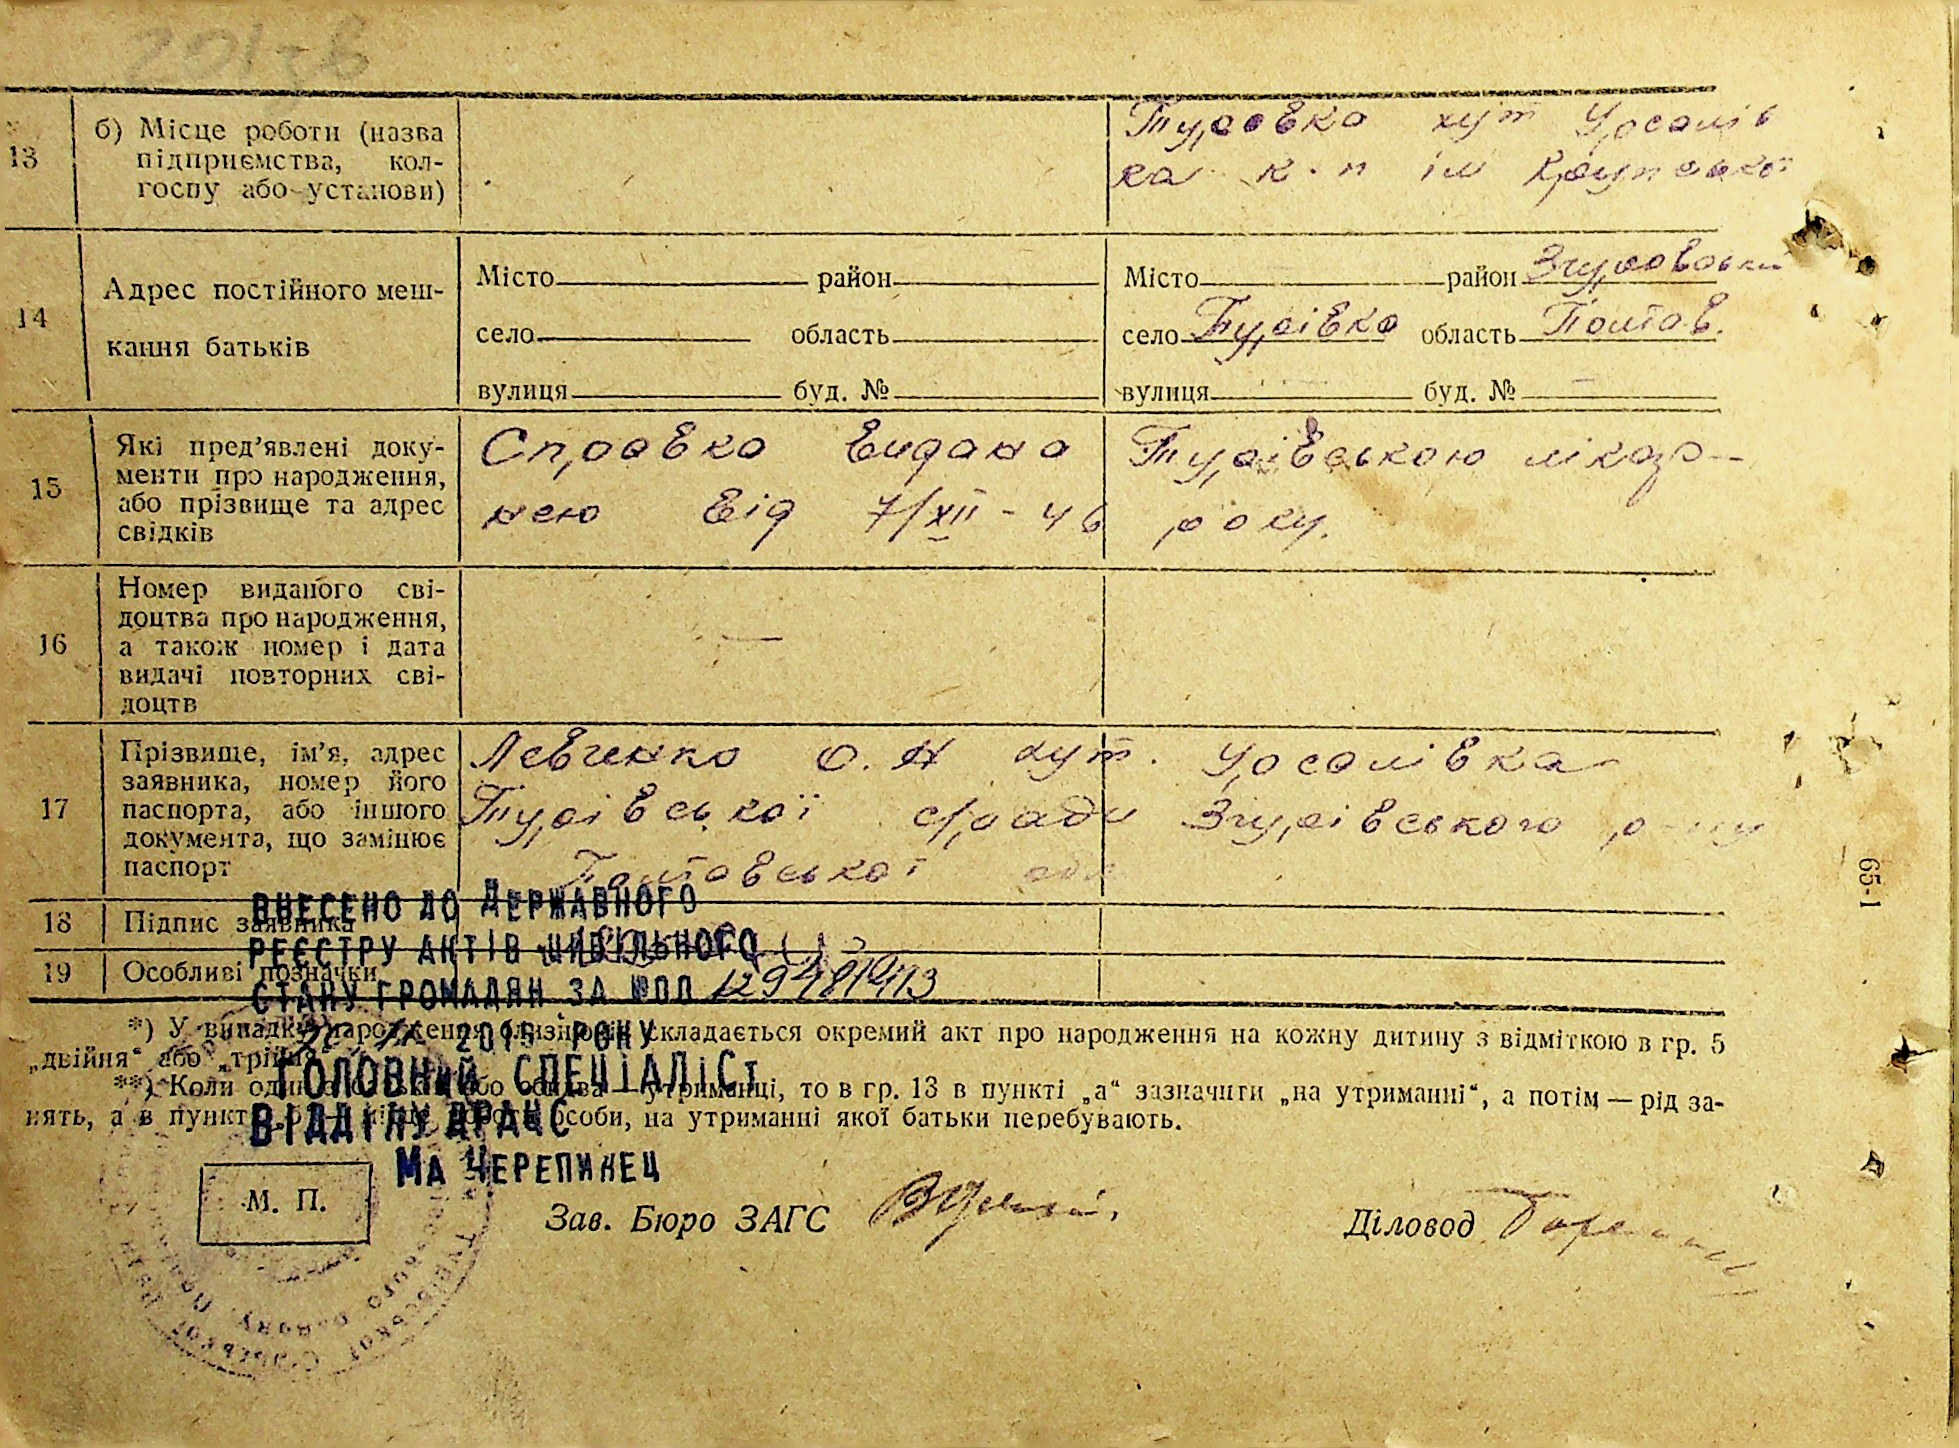 13
б) Місце роботи (назва
підприємства, кол-
госпу або установи)
Турівка хут Урсалів
ка к-п ім Крупської
14
Адрес постійного меш-
кання батьків
Місто район
село область
вулиця буд. №
Місто район Згурівськи
село Турівка область Полтав.
вулиця буд. №
15
Які пред’явлені доку-
менти про народження,
або прізвище та адрес
свідків
Справка видана Турівською лікар-
нею від 7/XII-46 року.
16
Номер виданого сві-
доцтва про народження,
а також номер і дата
видачі повторних сві-
доцтв
17
Прізвище, ім’я, адрес
заявника, номер його
паспорта, або іншого
документа, що замінює
паспорт
Левченко О. Н хут. Урсалівка
Турівської с/ради Згурівського р-ну
Полтавської обл
18 Підпис заявника
19 Особливі позначки
ВНЕСЕНО ДО ДЕРЖАВНОГО
РЕЄСТРУ АКТІВ ЦИВІЛЬНОГО
СТАНУ ГРОМАДЯН ЗА
2015 РОКУ
ГОЛОВНИЙ СПЕЦІАЛІСТ
ВІДДІЛУ ДРАЦС
МА ЧЕРЕПИНЕЦ
*) У випадку народження близнюків складається окремий акт про народження на кожну дитину з відміткою в гр. 5
„двійня“ або „трійня“
**) Коли один або обидва — утриманці, то в гр. 13 в пункті „а“ зазначити „на утриманні“, а потім — рід за-
нять, а в пункті особи, на утриманні якої батьки перебувають.
М. П.
Зав. Бюро ЗАГС
Діловод
65-1